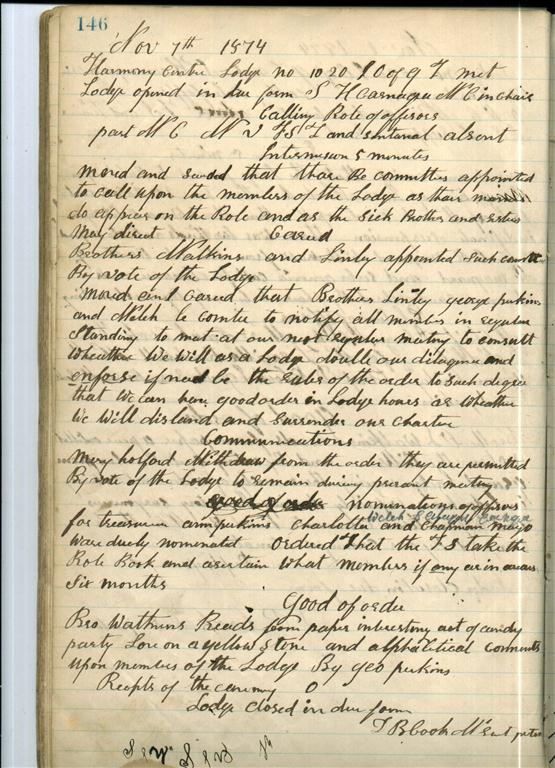 146
Nov 7th 1874
Harmony Centre Lodge no 1020 I O of G T met
Lodge opened in due form S H Carnagea W C in chair
Calling Role of officers
past W C W V F S T and sentenal absent
Intermission 5 minutes
moved and that thare be committee appointed
to call upon the members of the Lodge as thair
do appear on the Role and as the sick Brother and sisters
may direct Cared
Brothers Watkins and Linly appointed such
By vote of the Lodge
moved and cared that Brothers Linly george perkins
and Welch be comtee to notify all members in regular
standing to met at our next regular meeting to consult
Wheather We Will as a Lodge double our diligence and
enforse if need be the rules of the order to such degree
that We can have good order in Lodge hours or Wheather
We Will disband and surrender our charter
Communications
Mary holford Withdraw from the order they are permitted
By vote of the Lodge to remain during presant meeting
good of order nominations of
Welch &
for treasurer perkins Charlotte and Chapman
Ware duly nominated ordered that the F S take the
Role Book and asertain What members if any are in arears
six months
Good of order
Bro Watkins Reads from paper intresting act of candy
party Love on a yellow stone and alphabetical comments
upon members of the Lodge By geo perkins
Recepts of the 0
Lodge closed in due form
T B Cook W Sect